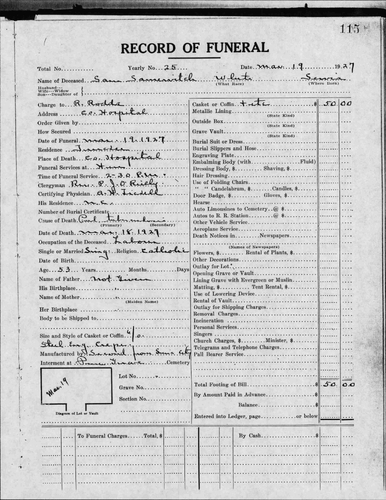 115
RECORD OF FUNERAL
Total No. Yearly No. 25 Date Mar 19 1927
Name of Deceased Sam Samerwitch White Servia
(What Race) (Where Born)
Husband—
Wife—Widow—
Son—Daughter of
Charge to R. Rodde
Address Co. Hospital
Order Given by
How Secured
Date of Funeral Mar. 19, 1927
Residence
Place of Death Co. Hospital
Funeral Services at Home
Time of Funeral Services 2-30 P.M.
Clergyman Rev. P. J. O Reilly
Certifying Physician
His Residence M.C.
Number of Burial Certificate
Cause of Death
(Primary) (Secondary)
Date of Death Mar. 18. 1927
Occupation of the Deceased Laborer
Single or Married Sing. Religion Catholic
Date of Birth
Age 53 Years Months Days
Name of Father Not Given
His Birthplace
Name of Mother
(Maiden Name)
Her Birthplace
Body to be Shipped to
Size and Style of Casket or Coffin 6/0
Crepe
Manufactured by
Interment at Cemetery
Mar 19
Diagram of Lot or Vault
Lot No.
Grave No.
Section No.
Casket or Coffin $ 50 00
Metallic Lining
(State Kind)
Outside Box
(State Kind)
Grave Vault
(State Kind)
Burial Suit or Dress
Burial Slippers and Hose
Engraving Plate
Embalming Body (with Fluid)
Dressing Body, $ Shaving, $
Hair Dressing
Use of Folding Chairs
" " Candelabrum, $ Candles, $
Door Badge, $ Gloves, $
Hearse
Auto Limousines to Cemetery @ $
Autos to R. R. Station @ $
Other Vehicle Service
Aeroplane Service
Death Notices in Newspapers
(Names of Newspapers)
Flowers, $ Rental of Plants, $
Other Decorations
Outlay for Lot
Opening Grave or Vault
Lining Grave with Evergreen or Muslin
Matting, $ Tent Rental, $
Use of Lowering Device
Rental of Vault
Outlay for Shipping Charges
Removal Charges
Incineration
Personal Services
Singers
Church Charges, $ Minister, $
Telegrams and Telephone Charges
Pall Bearer Service
Total Footing of Bill $ 50 00
By Amount Paid in Advance
Balance
Entered into Ledger, page or below
To Funeral Charges Total, $ By Cash $